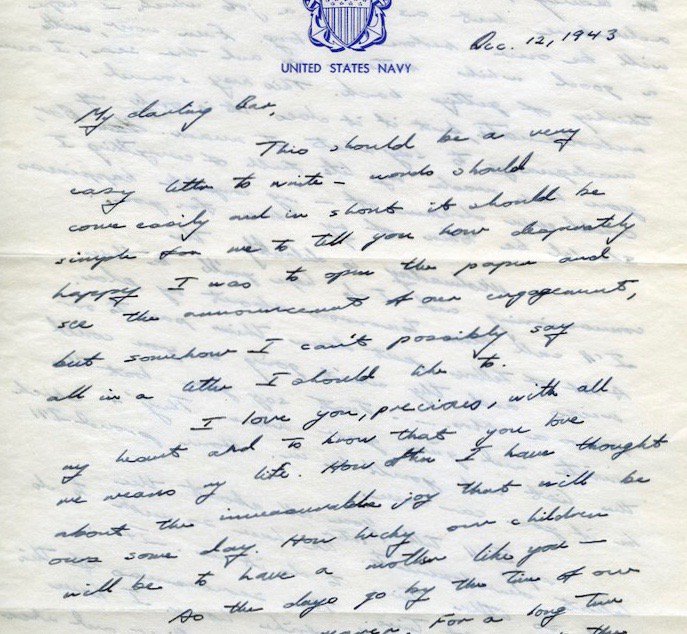 UNITED STATES NAVY
Dec. 12, 1943
My darling Bar,
This should be a very
easy letter to write — words should
come easily and in short it should be
simple for me to tell you how desperately
happy I was to open the paper and
see the announcement of our engagement,
but somehow I can't possibly say
all in a letter I should like to.
I love you, precious, with all
my heart and to know that you love
me means my life. How often I have thought
about the immeasurable joy that will be
ours some day. How lucky our children
will be to have a mother like you —
As the days go by the time of our
nearer. For a long time
the